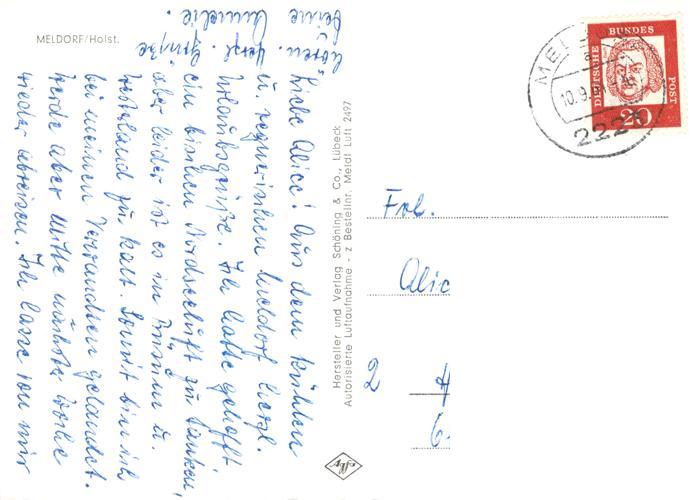 MELDORF/Holst.
Liebe Alice! Aus dem kühlen
u. regnerischen Meldorf herzl.
Urlaubsgrüße. Ich hatte gehofft
ein bischen Nordseeluft zu tanken,
aber leider ist es in Büsum u.
Westerland zu kalt. Somit bin ich
bei meinen Verwandten gelandet.
Werde aber Mitte nächster Woche
wieder abreisen. Ich lasse von mir
hören. Herzl. Grüße
Deine
Hersteller und Verlag Schöning & Co., Lübeck
Autorisierte Luftaufnahme - Z Bestellnr. Meldf Luft 2497
Agfa
DEUTSCHE BUNDES POST
20
10.9.
222
Frl.
Alic
2
6